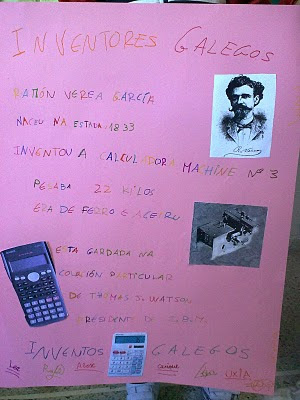 INVENTORES GALEGOS
RAMÓN VEREA GARCÍA
NACEU NA ESTADA: 1833
INVENTOU A CALCULADORA MACHINE Nº 3
PESABA 22 KILOS
ERA DE FERRO E ACEIRO
ESTA GARDADA NA
COLECCIÓN PARTICULAR
DE THOMAS J. WATSON
PRESIDENTE DE I.B.M.
INVENTOS GALEGOS
UXÍA